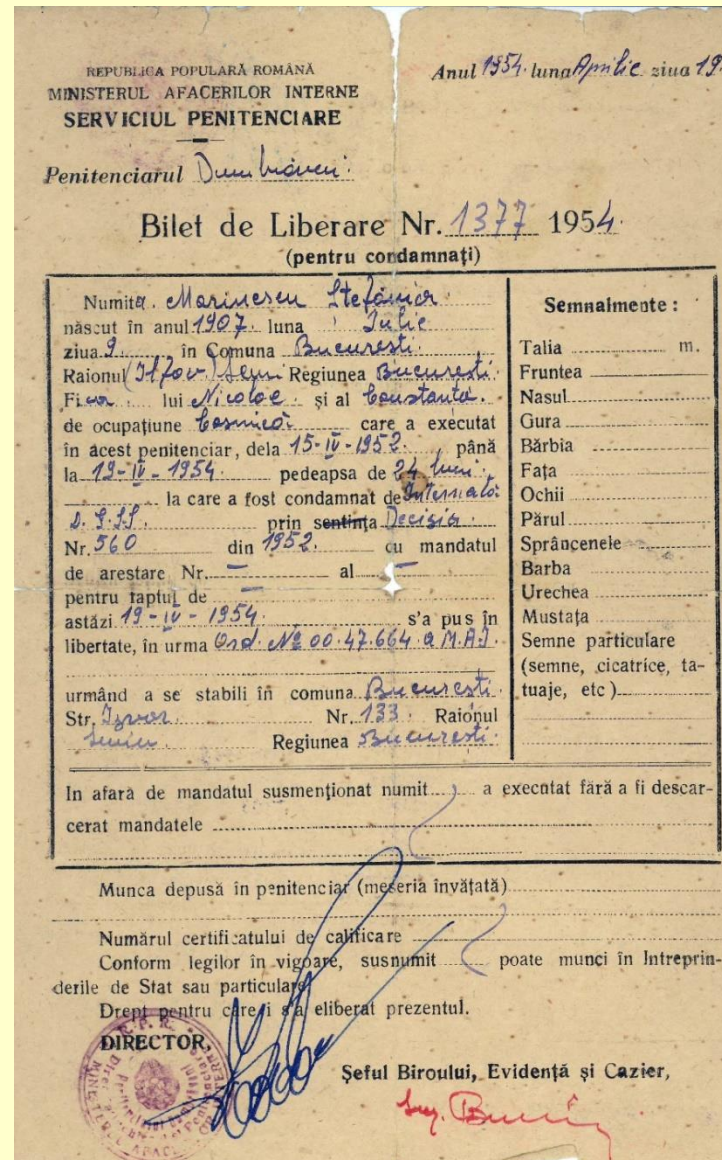 REPUBLICA POPULARĂ ROMÂNĂ
MINISTERUL AFACERILOR INTERNE
SERVICIUL PENITENCIARE
Anul 1954. luna Aprilie ziua 19
Penitenciarul Dumbrăveni.
Bilet de Liberare Nr. 1377 1954.
(pentru condamnați)
Numita. Marinescu Ștefania
născut în anul 1907. luna Iulie
ziua 9. în Comuna București.
Raionul (Ilfov) Regiunea București.
Fica lui Nicolae și al Constanta.
de ocupațiune Casnică. care a executat
în acest penitenciar, dela 15-IV-1952. până
la 19-IV-1954. pedeapsa de 24 luni.
la care a fost condamnat de Internată
D.G.S.S. prin sentința Decizia.
Nr. 560 din 1952. cu mandatul
de arestare Nr. — al —
pentru faptul de —
astăzi 19-IV-1954. s'a pus în
libertate, în urma Ord. № 00.47.664 a M.A.I.
urmând a se stabili în comuna București.
Str. Izvor. Nr. 133. Raionul
Regiunea București.
Semnalmente :
Talia m.
Fruntea
Nasul
Gura
Bărbia
Fața
Ochii
Părul
Sprâncenele
Barba
Urechea
Mustața
Semne particulare
(semne, cicatrice, ta-
tuaje, etc )
In afară de mandatul susmenționat numit a executat fără a fi descar-
cerat mandatele
Munca depusă în penitenciar (meseria învățată)
Numărul certificatului de calificare
Conform legilor în vigoare, susnumit poate munci în Intreprin-
derile de Stat sau particulare
Drept pentru care i s'a eliberat prezentul.
DIRECTOR,
Șeful Biroului, Evidență și Cazier,